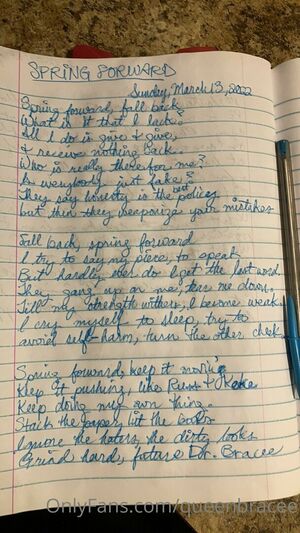 SPRING FORWARD
Sunday, March 13, 2022
Spring forward, fall back,
What is it that I lack?
All I do is give & give,
& receive nothing back.
Who is really there for me?
Is everybody just fake?
They say honesty is the best policy
but then they weaponize your mistakes
Fall back, spring forward
I try to say my piece, to speak,
But hardly ever do I get the last word
They gang up on me, tear me down,
Till my strength withers, I become weak
I cry myself to sleep, try to
avoid self-harm, turn the other cheek
Spring forward, keep it movin'
Keep it pushing, like Rush & Keke
Keep doing my own thing.
Stack the paper, hit the books
Ignore the haters, the dirty looks
Grind hard, future Dr. Bracee
OnlyFans.com/queenbracee